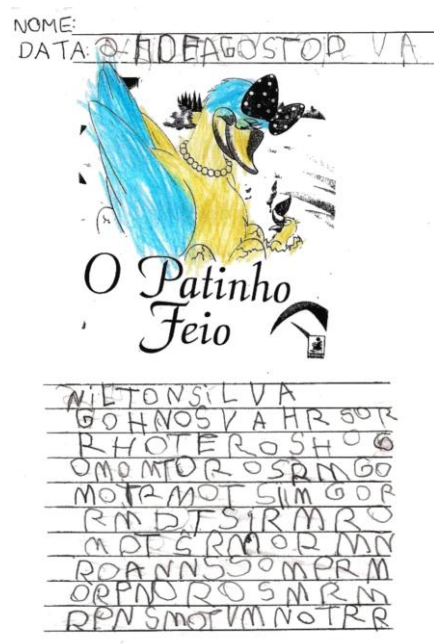 NOME:
DATA: DEAGOSTOD VA
O Patinho
Feio
NiLTONSiLVA
GOHNOSVAHRSOR
RHOTEROSHOG
OMOMTOROSRMGO
MOTRMOTSIIMGOR
RMDTSiRMRO
MOTSRMORMN
ROANNSSOMPRM
ORPNOROSMRM
RPNSMOTVMNOTRR